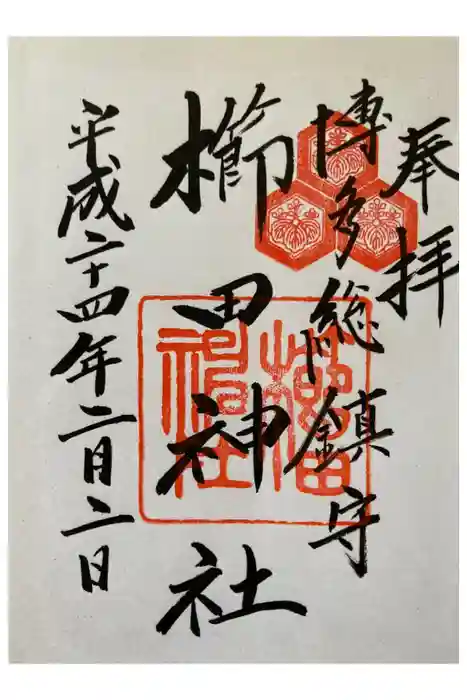 奉拝
博多総鎮守
櫛田神社
平成二十四年二月二日